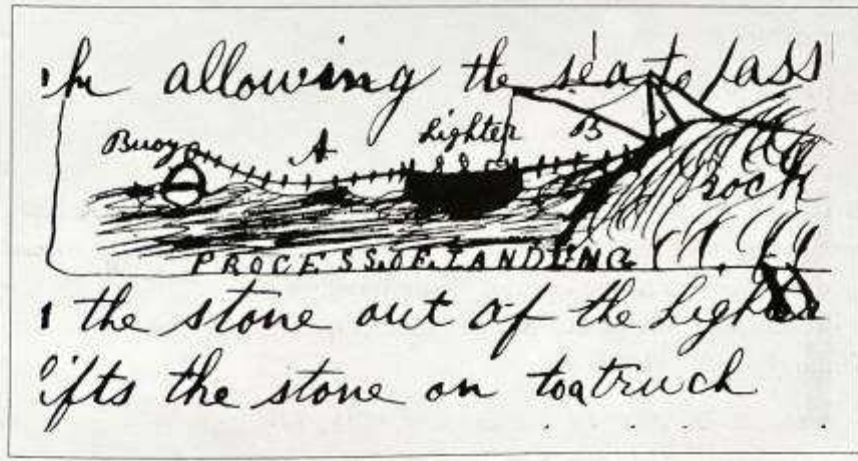 allowing the sea to pass
Buoy A Lighter B
rock
PROCESS.OF.LANDING
the stone out of the Lighter
ifts the stone on to a truck